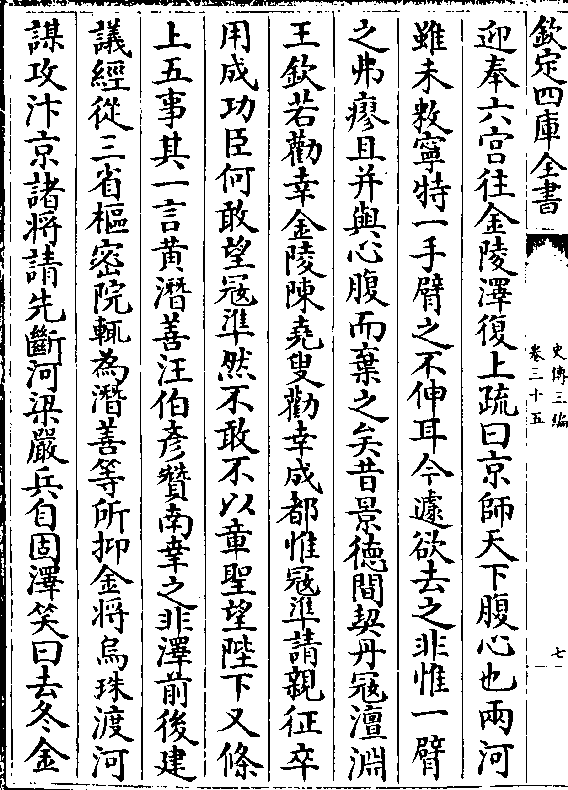 欽定四庫全書
史傳三編
卷三十五
七
迎奉六宫往金陵澤復上疏曰京師天下腹心也兩河
雖未敉寧特一手臂之不伸耳今遽欲去之非惟一臂
之弗瘳且并與心腹而棄之矣昔景徳間契丹冦澶淵
王欽若勸幸金陵陳堯叟勸幸成都惟冦準請親征卒
用成功臣何敢望冦準然不敢不以章聖望陛下又條
上五事其一言黄潛善汪伯彦贊南幸之非澤前後建
議經從三省樞密院輒為潛善等所抑金将烏珠渡河
謀攻汴京諸将請先斷河梁嚴兵自固澤笑曰去冬金